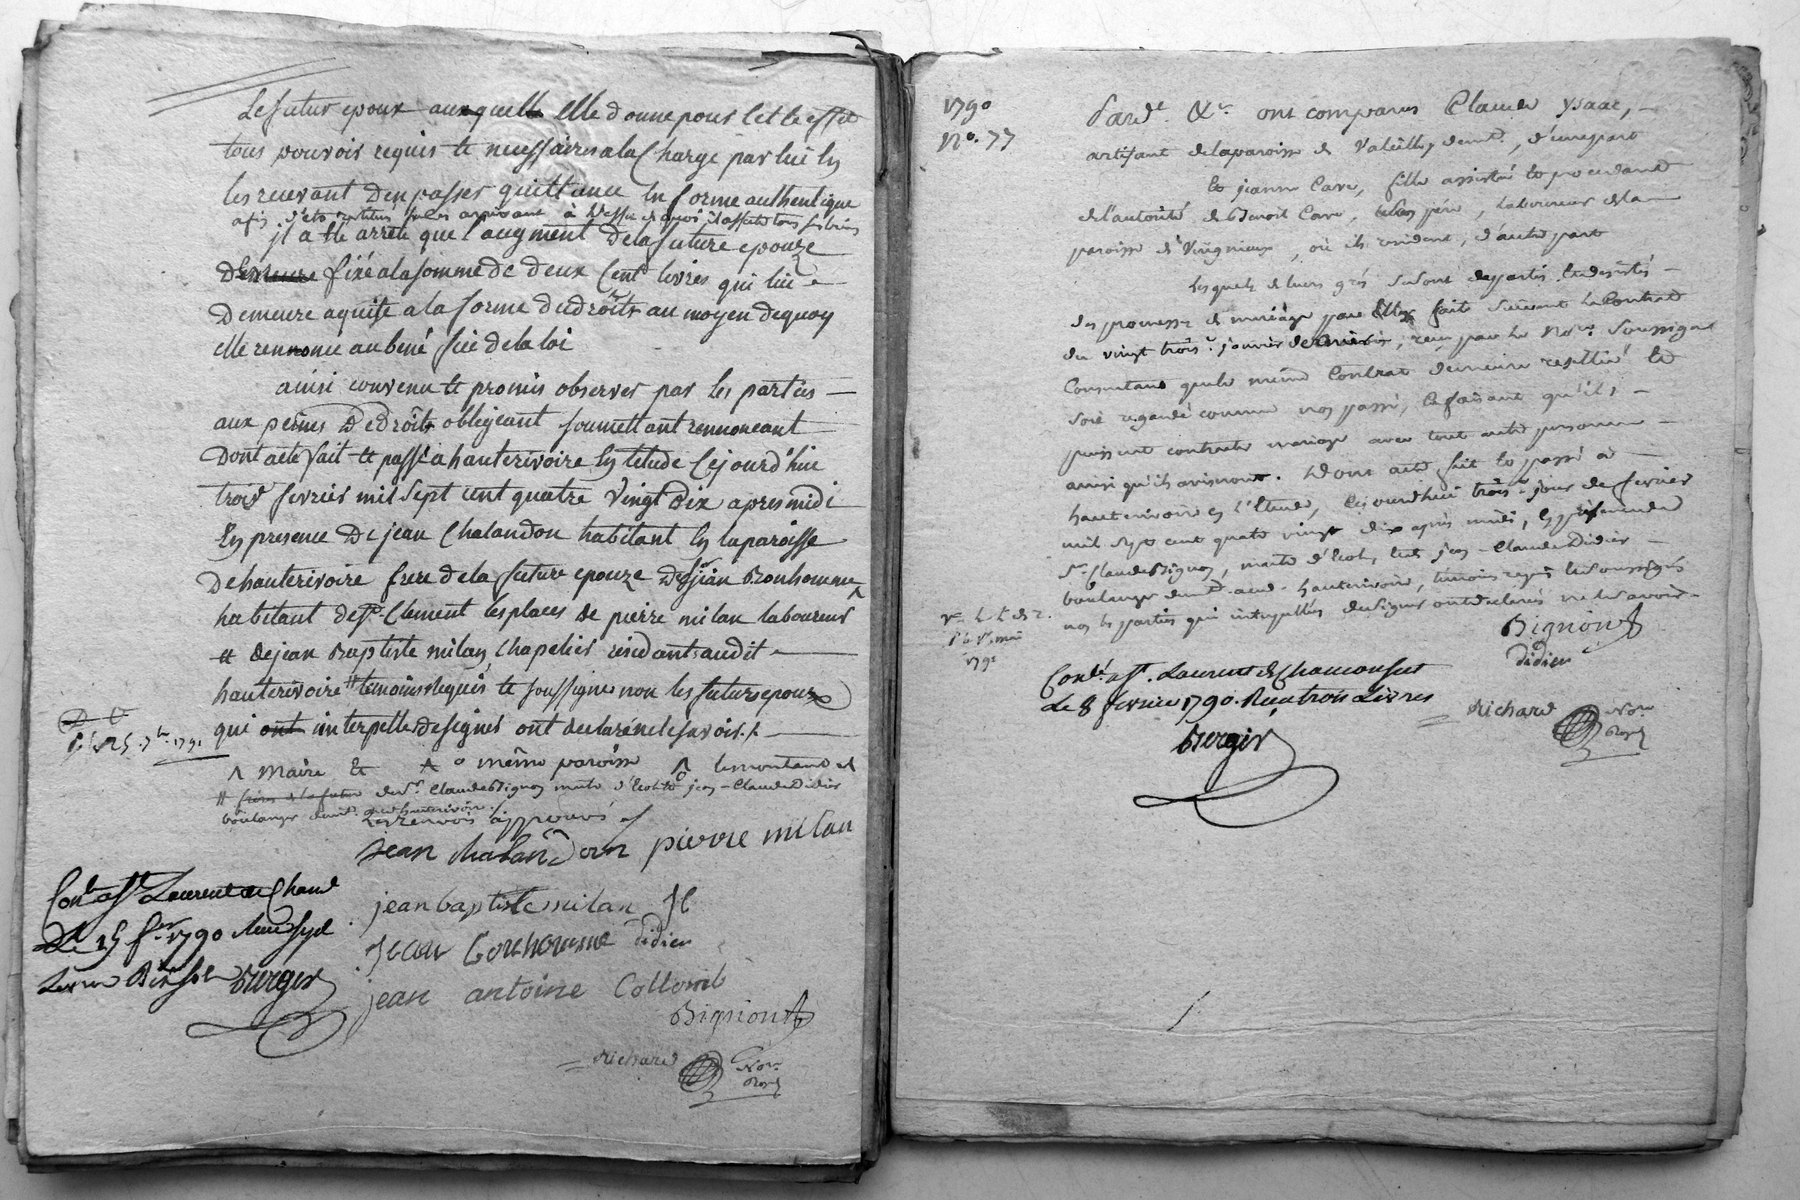 Le futur epoux auxquell elle donne pour cet le effet
tous pouvoir requis et necessaires a la Charge par lui en
les recevant d'en passer quittance en forme authentique
affin d'etre
il a été arrêté que l'augment de la future epouze
Demeure fixé a la somme de deux Cent livres qui lui
Demeure aquise a la forme de droits au moyen de quoy
elle rennonce au benéfice de la loi
ainsi convenu et promis observer par les parties
aux peines de droits obligeant soumettant rennonceant
Dont acte fait et passé a hauterivoire en l'etude Cejourd'hui
trois fevrier mil sept cent quatre vingt dix apres midi
En presence De jean Chalandon habitant en la paroisse
De hauterivoire frere de la future epouze De jean Bonhomme
habitant de St Clement les places de pierre milan laboureur
# de jean Baptiste milan, Chapelier residants audit
hauterivoire # temoins requis et soussignes non les futurs epoux
qui ont interpellés de signer ont declaré ne le savoir./.
^ maire &
même paroisse
# du Sr. Claude Bignon maitre d'ecole et jean-Claude Didier
boulanger demt. aud hauterivoire ./.
les renvois approuvés
jean chalandon pierre milan
jean baptiste milan
Jean bonhomme didier
jean antoine Collomb
Bignon
Richard
Nore
Royal
Conlé à St Laurent de Cham
Le 15 fer 1790
Berger
1790
No. 77
Pardt. &c. ont comparus Claude ysaac,
artisant de la paroisse de Valeille, y demt., d'une part
Et jeanne Cave, fille assistée et procedant
de l'autorité de Benoit Cave, son père, laboureur de la
paroisse de Virigneux, où ils resident, d'autre part
Lesquels de leurs grés se sont departis et desistés
des promesses de mariage par elles faite suivant le Contrat
du vingt trois janvier dernier, reçu par le Nore. Soussigné
Consentant que le même Contrat demeure resillié et
soit regardé comme non passé, Ce faisant qu'ils
puissent contracter mariage avec tout autre personne
ainsi qu'ils aviseront. Dont acte fait et passé a
hauterivoire en l'Etude, Cejourdhui trois jour de fevrier
mil sept cent quatre vingt dix après midi, En présence de
Sr. Claude Bignon, maitre d'Ecole, et de jean-Claude Didier
boulanger demt. aud. hauterivoire, temoins requis et soussignés
non les parties qui interpellées de signer ont declarés ne le savoir
Bignon
didier
Conlé à St. Laurent de Chamousset
Le 8 fevrier 1790. Reçu trois Livres
Berger
Richard
Nore
Royal
1791